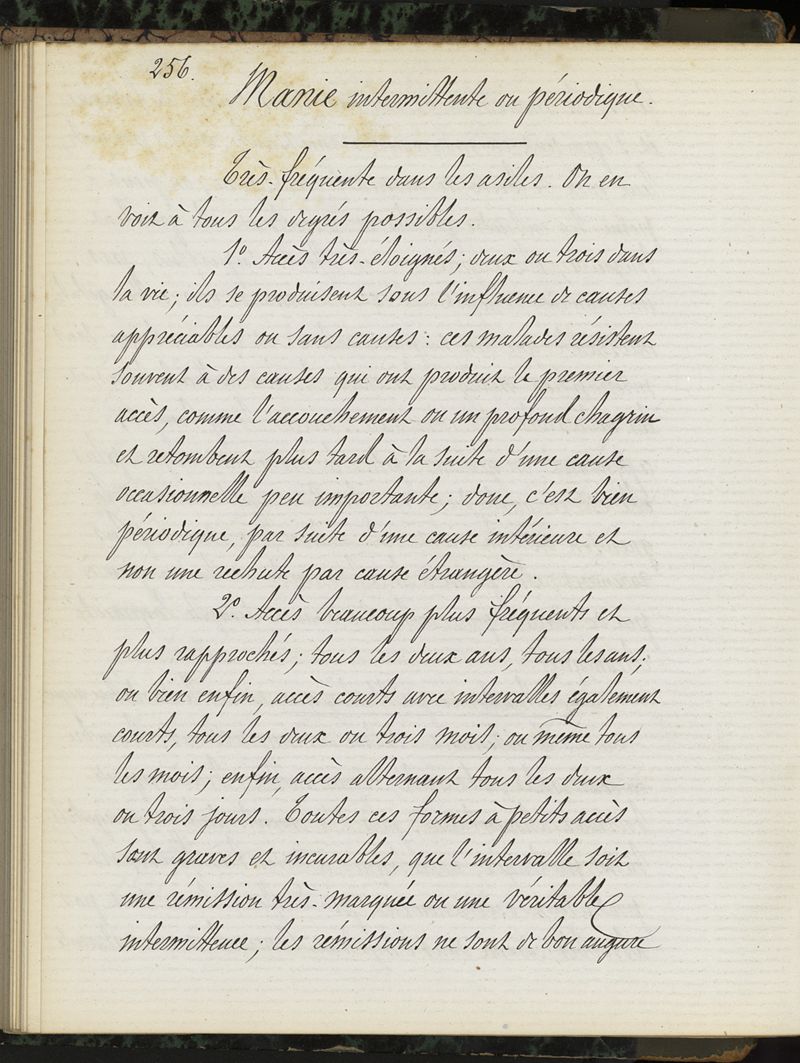 256.
Manie intermittente ou périodique.
Très-fréquente dans les asiles. On en
voit à tous les degrés possibles.
1º. Accès très-éloignés; deux ou trois dans
la vie; ils se produisent sous l'influence de causes
appréciables ou sans causes: ces malades résistent
souvent à des causes qui ont produit le premier
accès, comme l'accouchement ou un profond chagrin
et retombent plus tard à la suite d'une cause
occasionnelle peu importante; donc, c'est bien
périodique, par suite d'une cause intérieure et
non une rechute par cause étrangère.
2º. Accès beaucoup plus fréquents et
plus rapprochés; tous les deux ans, tous les ans;
ou bien enfin, accès courts avec intervalles également
courts, tous les deux ou trois mois; ou même tous
les mois; enfin, accès alternant tous les deux
ou trois jours. Toutes ces formes à petits accès
sont graves et incurables, que l'intervalle soit
une rémission très-marquée ou une véritable
intermittence; les rémissions ne sont de bon augure